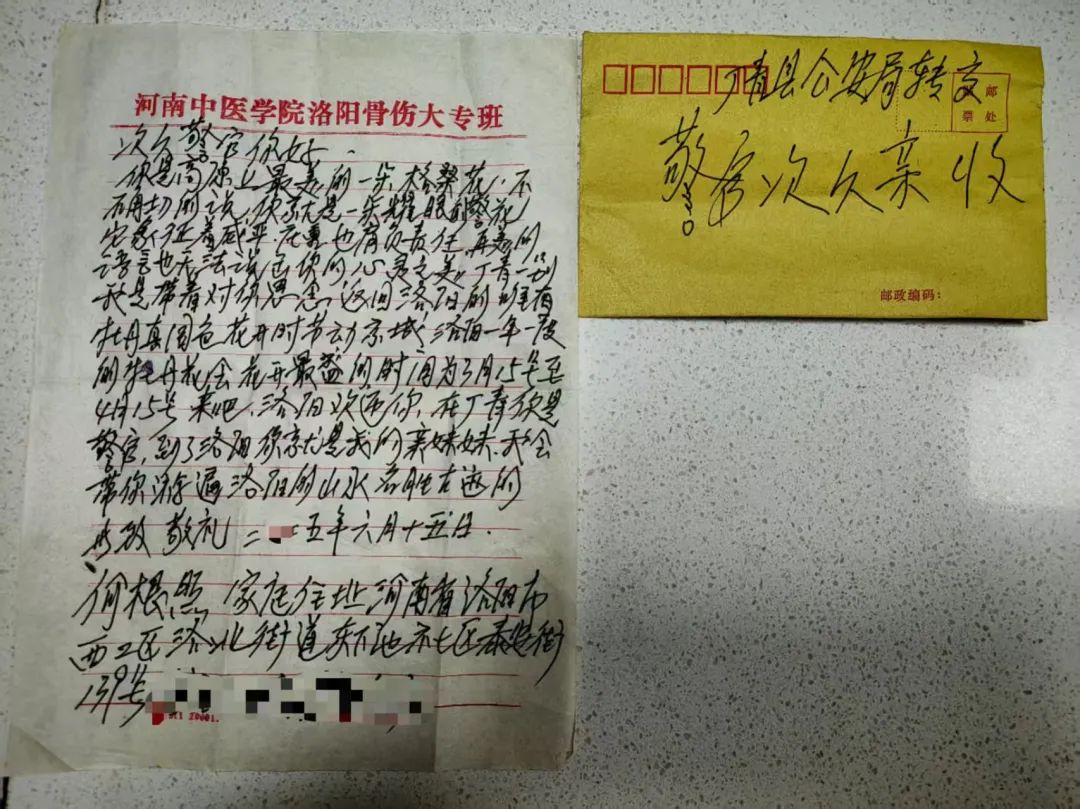 河南中医学院洛阳骨伤大专班
次久警官你好.
你是高原上最美的一朵格桑花,不
确切的说,你就是一朵耀眼的警花
着威严.在也有负责任,再美的
语言也无法说出你的心灵之美,丁青一别
我是带着对你思念返回洛阳的唯有
牡丹真国色花开时节动京城洛阳一年一度
的牡丹花会花开最盛的时间为3月15号至
4月15号来吧,洛阳欢迎你,在丁青你是
警官,到了洛阳你就是我的亲妹妹,我会
带你游遍洛阳的山水名胜古迹的
此致敬礼二 五年六月十五日.
何根照 家庭住址河南省洛阳市
西工区洛北街道东下池市七区春街
139号
丁青县公安局转交
警官次久亲收
邮票处
邮政编码: